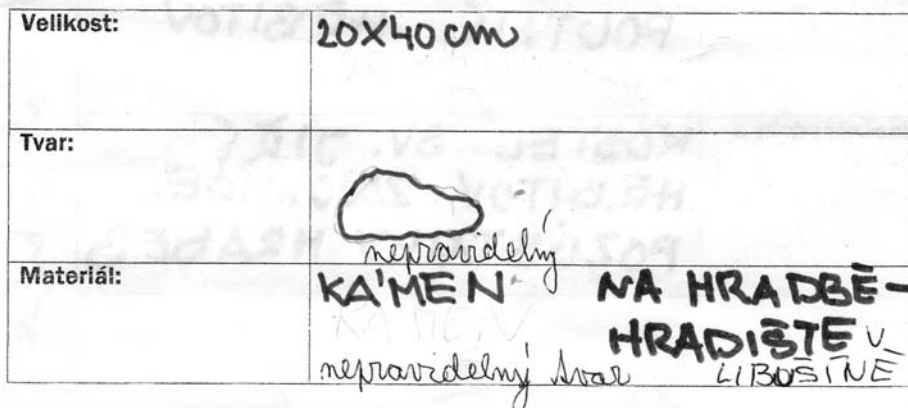 Velikost: 20X40 cm
Tvar:
nepravidelný
Materiál: KÁMEN NA HRADBĚ-
HRADIŠTĚ V
nepravidelný tvar LIBUŠÍNĚ